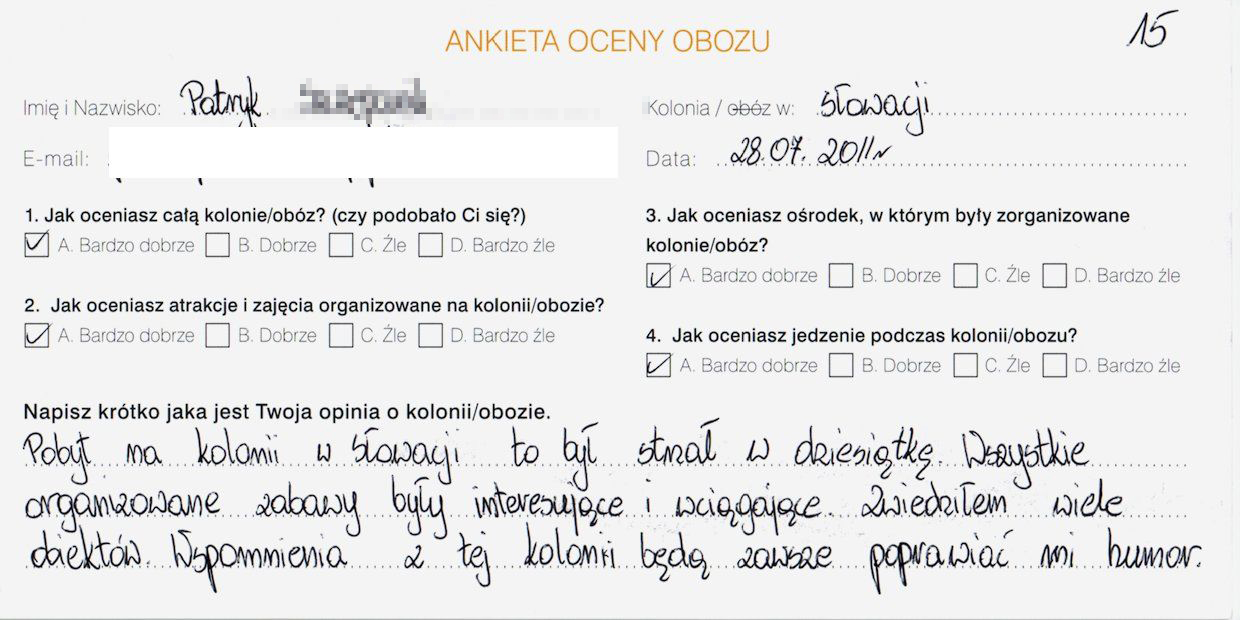 15
ANKIETA OCENY OBOZU
Imię i Nazwisko: Patryk
Kolonia / obóz w: Słowacji
E-mail:
Data: 28.07. 2011r
1. Jak oceniasz całą kolonie/obóz? (czy podobało Ci się?)
A. Bardzo dobrze B. Dobrze C. Źle D. Bardzo źle
2. Jak oceniasz atrakcje i zajęcia organizowane na kolonii/obozie?
A. Bardzo dobrze B. Dobrze C. Źle D. Bardzo źle
3. Jak oceniasz ośrodek, w którym były zorganizowane
kolonie/obóz?
A. Bardzo dobrze B. Dobrze C. Źle D. Bardzo źle
4. Jak oceniasz jedzenie podczas kolonii/obozu?
A. Bardzo dobrze B. Dobrze C. Źle D. Bardzo źle
Napisz krótko jaka jest Twoja opinia o kolonii/obozie.
Pobyt na kolonii w Słowacji to był strzał w dziesiątkę. Wszystkie
organizowane zabawy były interesujące i wciągające. Zwiedziłem wiele
obiektów. Wspomnienia z tej kolonii będą zawsze poprawiać mi humor.